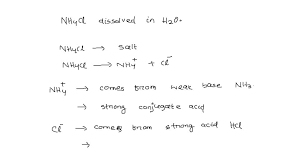 NH4Cl dissolved in H2O.
NH4Cl → Salt
NH4Cl → NH4+ + Cl-
NH4+ → comes from weak base NH3
→ strong conjugate acid
Cl- → comes from strong acid HCl
→